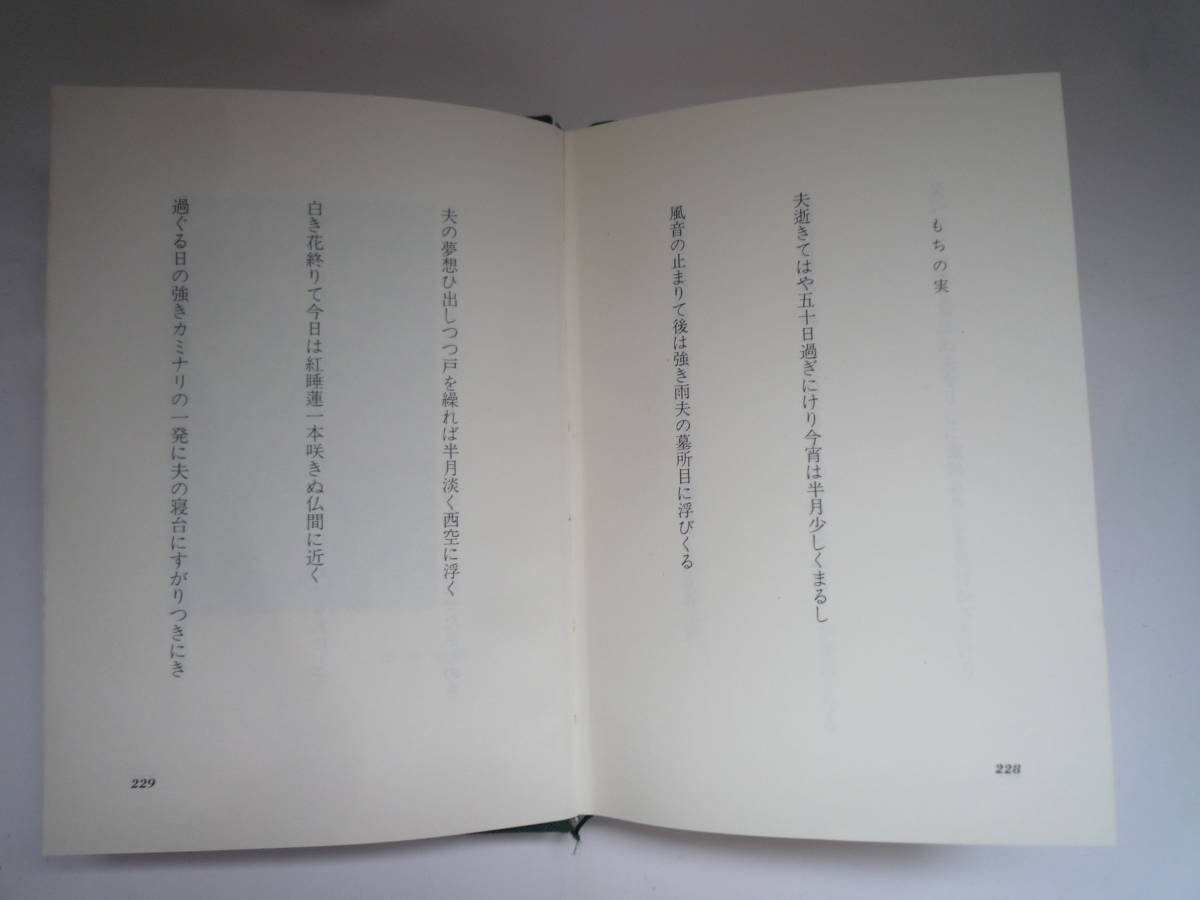 もちの実
夫逝きてはや五十日過ぎにけり今宵は半月少しくまるし
風音の止まりて後は強き雨夫の墓所目に浮びくる
228
夫の夢想ひ出しつつ戸を繰れば半月淡く西空に浮く
白き花終りて今日は紅睡蓮一本咲きぬ仏間に近く
過ぐる日の強きカミナリの一発に夫の寝台にすがりつきにき
229